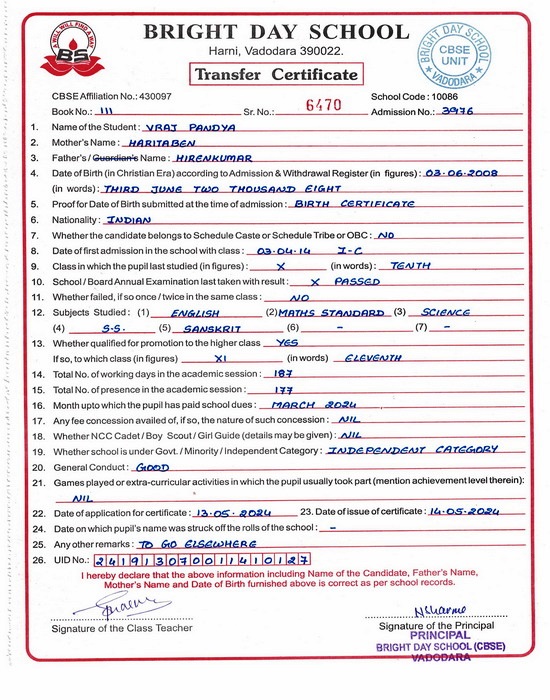 A WILL WILL FIND A WAY
BS
BRIGHT DAY SCHOOL
Harni, Vadodara 390022.
BRIGHT DAY SCHOOL
CBSE UNIT
VADODARA
Transfer Certificate
CBSE Affiliation No.: 430097 School Code : 10086
Book No.: 111 Sr. No.: 6470 Admission No.: 3976
1. Name of the Student : VRAJ PANDYA
2. Mother's Name : HARITABEN
3. Father's / Guardian's Name : HIRENKUMAR
4. Date of Birth (in Christian Era) according to Admission & Withdrawal Register (in figures) : 03-06-2008
(in words) : THIRD JUNE TWO THOUSAND EIGHT
5. Proof for Date of Birth submitted at the time of admission : BIRTH CERTIFICATE
6. Nationality : INDIAN
7. Whether the candidate belongs to Schedule Caste or Schedule Tribe or OBC : NO
8. Date of first admission in the school with class : 03-04-14 I-C
9. Class in which the pupil last studied (in figures) : X (in words) : TENTH
10. School / Board Annual Examination last taken with result : X PASSED
11. Whether failed, if so once / twice in the same class : NO
12. Subjects Studied : (1) ENGLISH (2) MATHS STANDARD (3) SCIENCE
(4) S.S. (5) SANSKRIT (6) - (7) -
13. Whether qualified for promotion to the higher class YES
If so, to which class (in figures) XI (in words) ELEVENTH
14. Total No. of working days in the academic session : 187
15. Total No. of presence in the academic session : 177
16. Month upto which the pupil has paid school dues : MARCH 2024
17. Any fee concession availed of, if so, the nature of such concession : NIL
18. Whether NCC Cadet / Boy Scout / Girl Guide (details may be given) : NIL
19. Whether school is under Govt. / Minority / Independent Category : INDEPENDENT CATEGORY
20. General Conduct : GOOD
21. Games played or extra-curricular activities in which the pupil usually took part (mention achievement level therein):
NIL
22. Date of application for certificate : 13-05-2024 23. Date of issue of certificate : 14-05-2024
24. Date on which pupil's name was struck off the rolls of the school : -
25. Any other remarks : TO GO ELSEWHERE
26. UID No.: 241913070011410127
I hereby declare that the above information including Name of the Candidate, Father's Name,
Mother's Name and Date of Birth furnished above is correct as per school records.
NSharma
Signature of the Class Teacher Signature of the Principal
PRINCIPAL
BRIGHT DAY SCHOOL (CBSE)
VADODARA